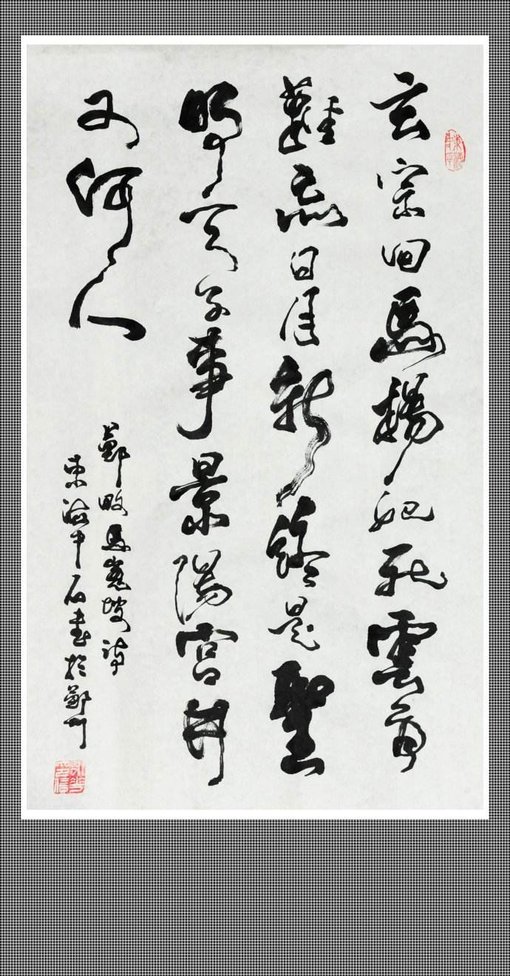 玄宗回馬楊妃死雲雨
難忘日月新終是聖
明天子事景陽宮井
又何人
鄭畋馬嵬坡詩
東海中石書於鄭州